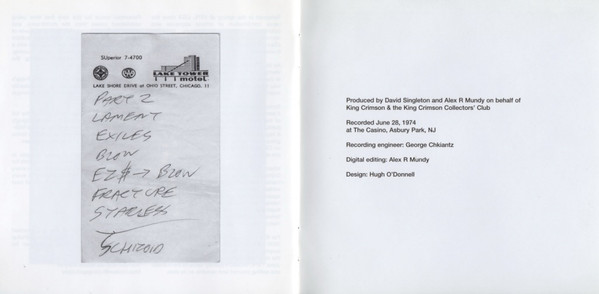 SUperior 7-4700
LAKE TOWER
motel
LAKE SHORE DRIVE at OHIO STREET, CHICAGO, 11
PART 2
LAMENT
EXILES
BLOW
EZ$ → BLOW
FRACTURE
STARLESS
SCHIZOID
Produced by David Singleton and Alex R Mundy on behalf of
King Crimson & the King Crimson Collectors' Club
Recorded June 28, 1974
at The Casino, Asbury Park, NJ
Recording engineer: George Chkiantz
Digital editing: Alex R Mundy
Design: Hugh O'Donnell